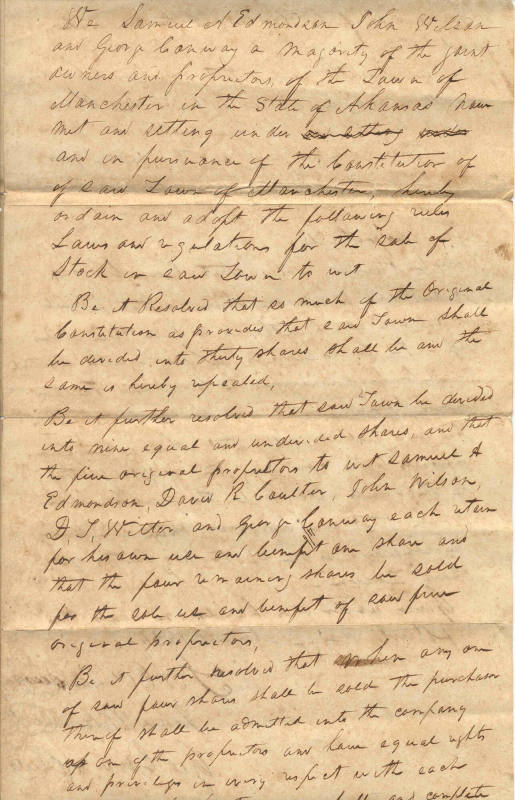 We Samuel A Edmondson John Wilson
and George Conway a majority of the joint
owners and proprietors, of the Town of
Manchester in the State of Arkansas now
met and setting under
and in pursuance of the Constitution of
of said Town of Manchester, hereby
ordain and adopt the following rules
Laws and regulations for the sale of
Stock in said Town to wit
Be it Resolved that so much of the Original
Constitution as provides that said Town shall
be divided into thirty shares shall be and the
same is hereby repealed,
Be it further resolved that said Town be divided
into nine equal and undivided shares, and that
the five original proprietors to wit Samuel A
Edmondson, David R Coulter, John Wilson,
D. T. Witter and George Conway each retain
for his own use and benefit one share and
that the four remaining shares be sold
for the sole use and benefit of said five
original proprietors,
Be it further resolved that when any one
of said four shares shall be sold the purchaser
thereof shall be admitted into the company
as one of the proprietors and have equal rights
and privileges in every respect with each
and complete